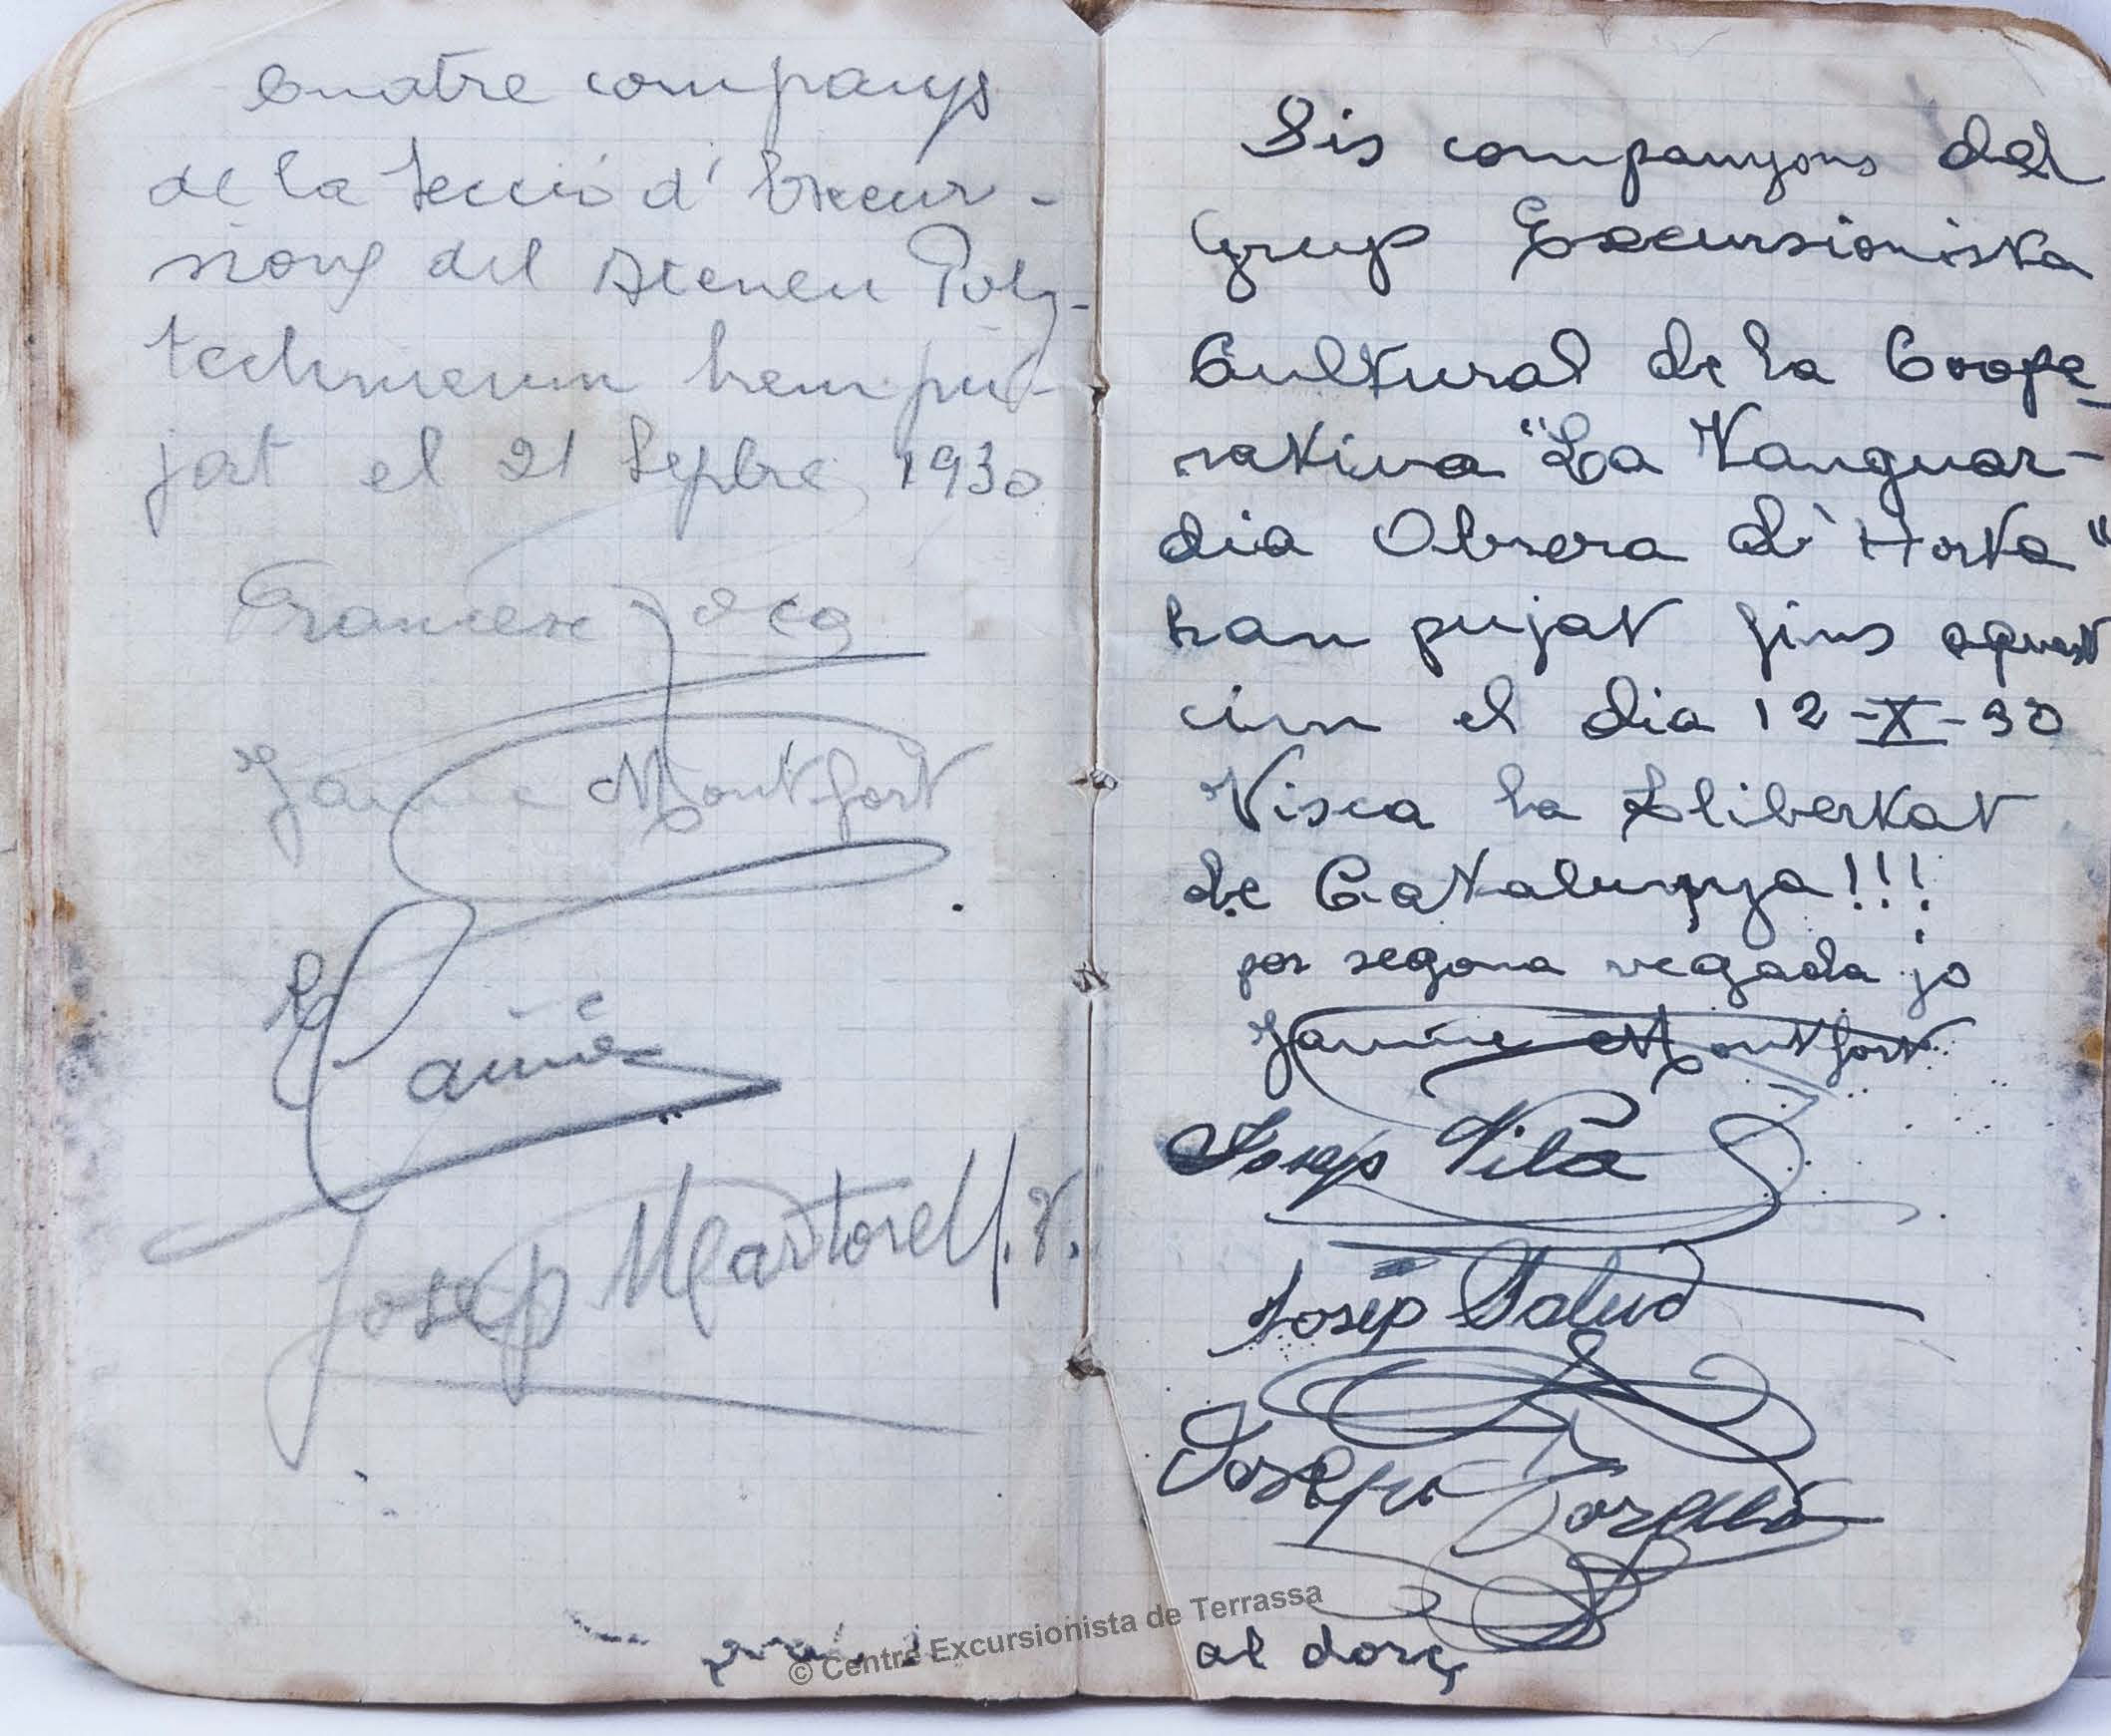 Cuatre companys
de la Secció d'Excur-
sions del Ateneu Poly-
technicum hem pu-
jat el 21 Sepbre 1930
Francesc
Jaume Montfort
Josep Martorell. V.
Sis companyons del
Grup Excursionista
Cultural de la Coope-
rativa "La Vanguar-
dia Obrera d'Horta"
han pujat fins aquest
cim el dia 12-X-30
Visca la Llibertat
de Catalunya!!!
per segona vegada jo
Jaume Montfort
Josep Vila
Josep Salud
al dorç
© Centre Excursionista de Terrassa